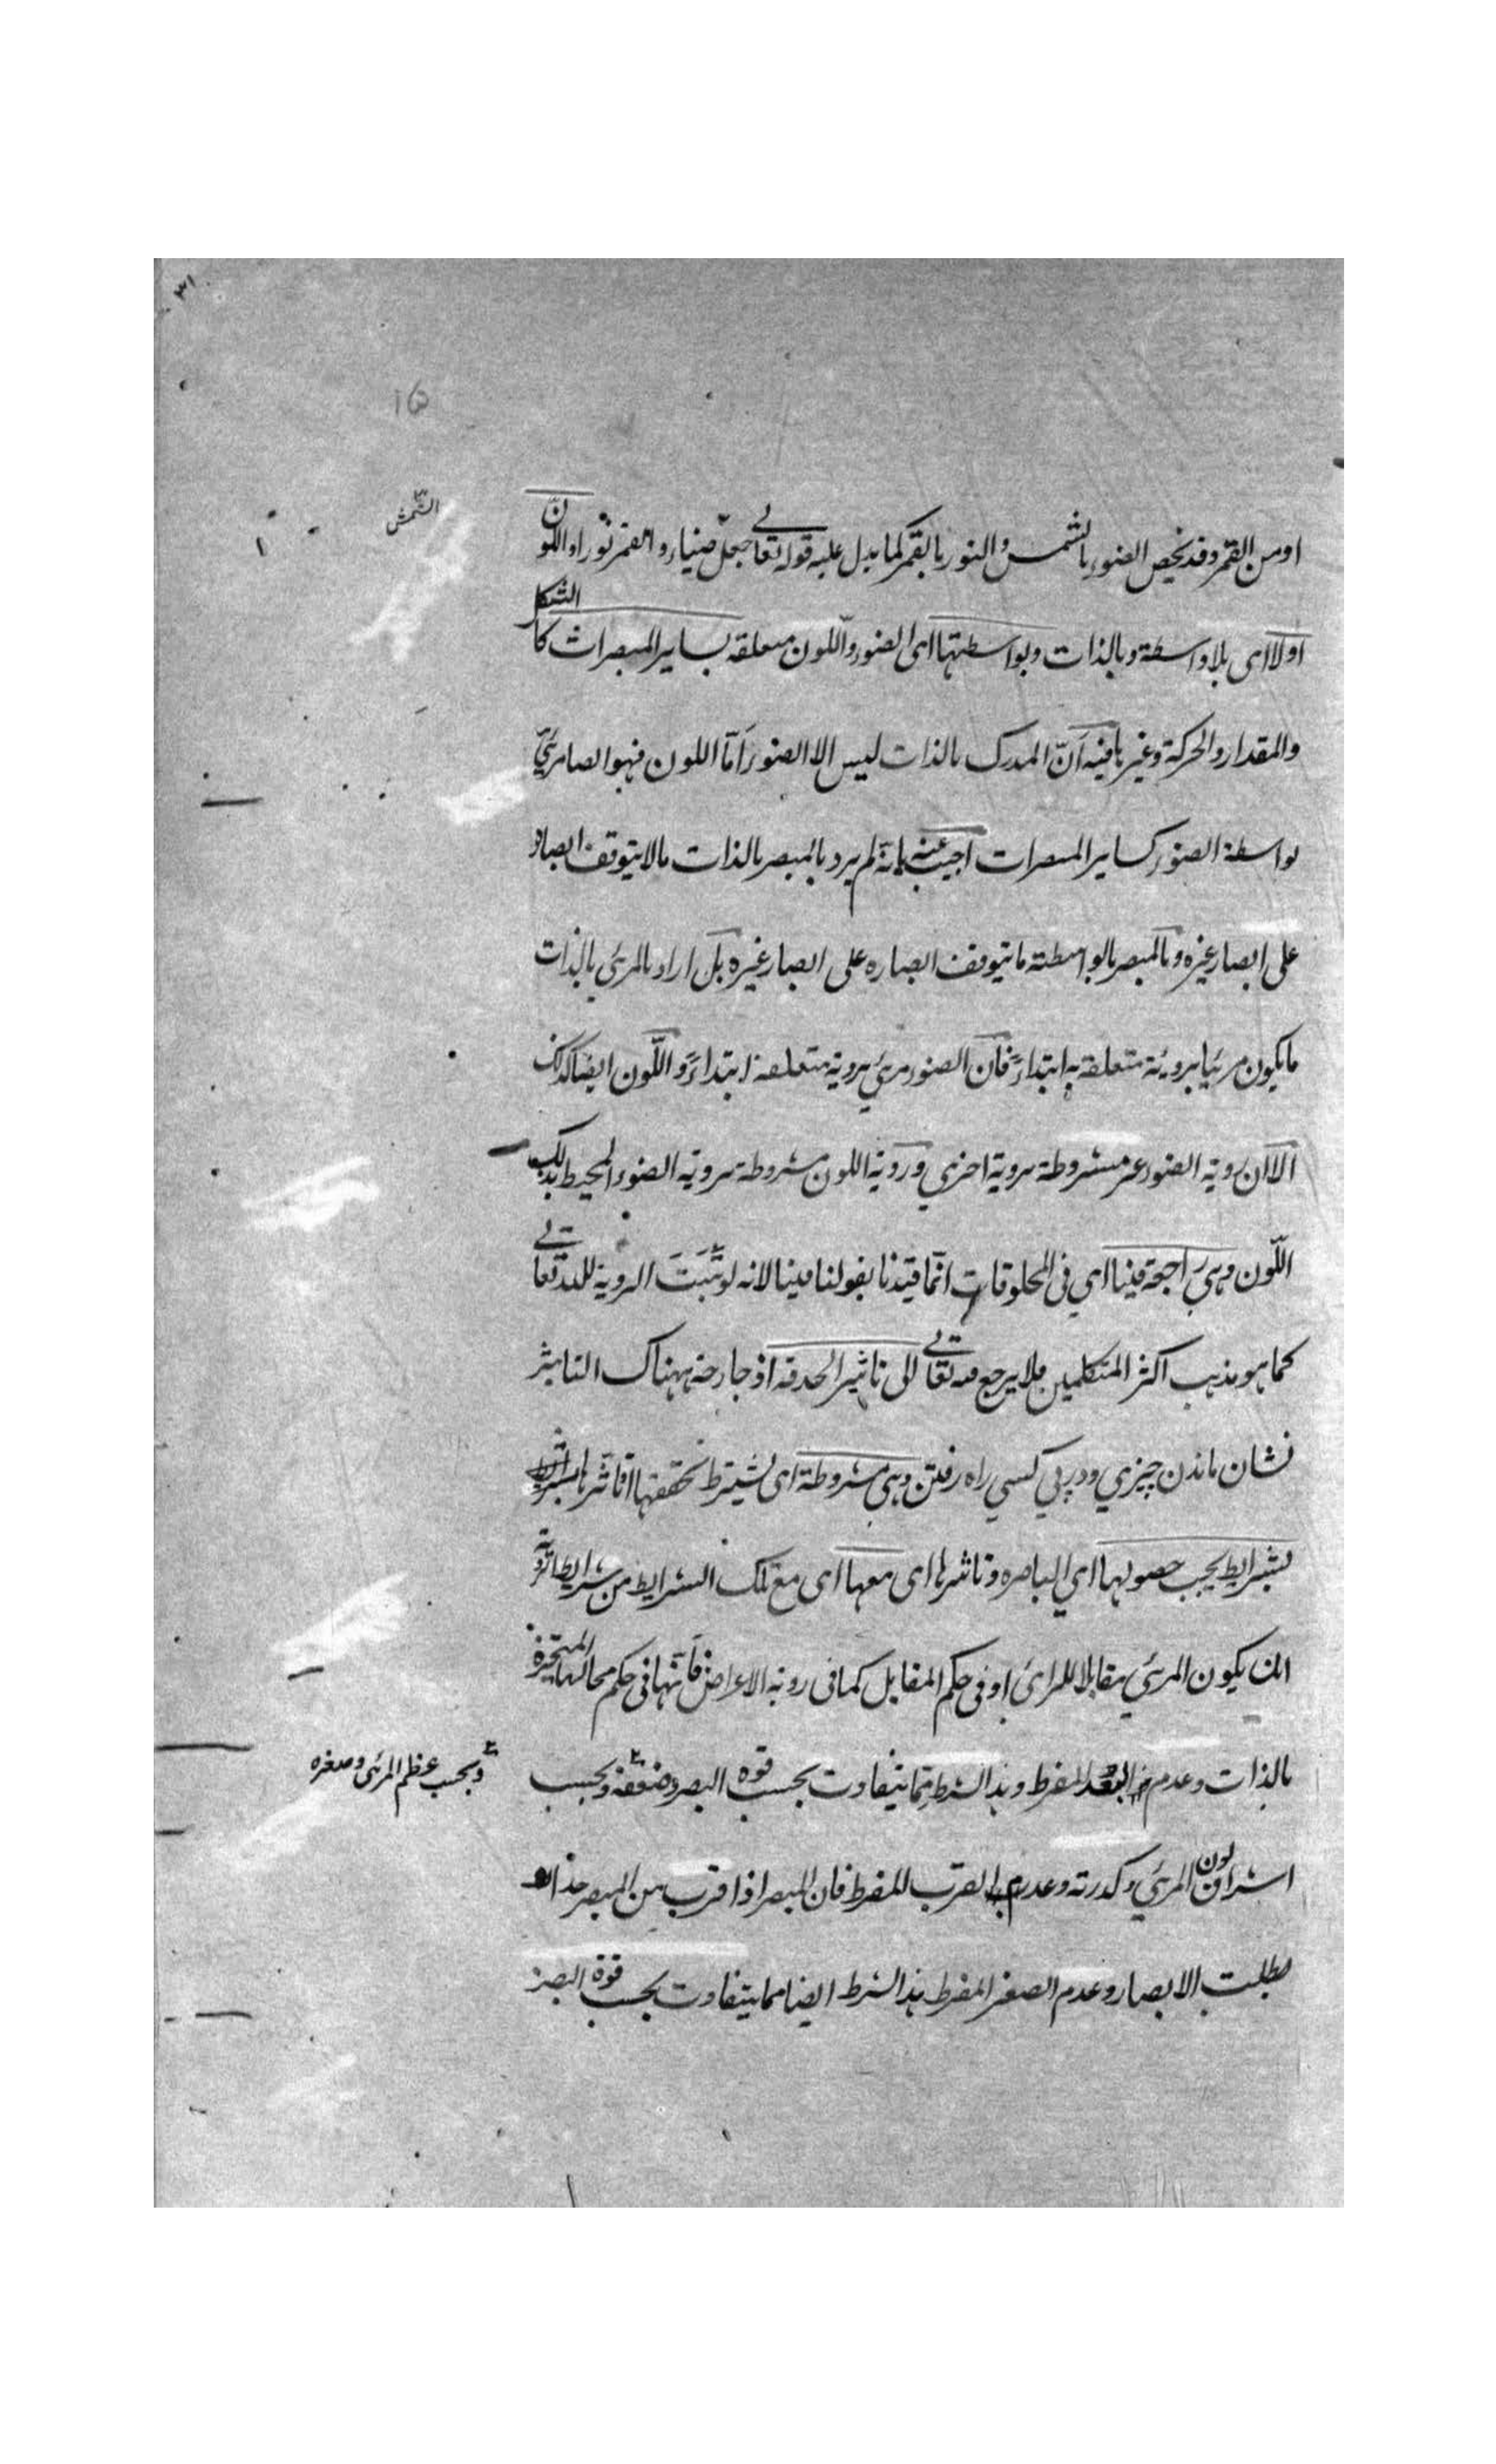 ٣١
١٥
او من القمر وقد يخص الضوء بالشمس والنور بالقمر كما يدل عليه قوله تعالى جعل ضياء والقمر نورا واللون
الشمس
اولا اى بلا واسطة وبالذات وبواسطتهما اى الضوء واللون متعلقه بساير المبصرات كالشكل
والمقدار والحركة وغيرها فيه اَنّ المدرك بالذات ليس الا الضوء اَمّا اللون فهو ايضا مرئيّ
بواسطة الضوء كساير المبصرات اجيب عنه بانه لم يرد بالمبصر بالذات مالا يتوقف ابصاره
على ابصار غيره وبالمبصر بالواسطة ما يتوقف ابصاره على ابصار غيره بل اراد بالمرئي بالذات
ما يكون مرئيا بروية متعلقة به ابتداءً فان الضوء مرئي بروية متعلقة ابتداءً واللّون ايضا كذلك
الا ان روية الضوء غير مشروطة بروية اخرى وروية اللون مشروطة بروية الضوء المحيط بذلك
اللّون وهي راجعة فينا اي في المخلوقات انّما قيّدنا بقولنا فينا لانه لو ثَبَتَ الروية للّه تعالى
كما هو مذهب اكثر المتكلمين فلا يرجع منه تعالى الى تاثير الحدقه اذ جارحة هناك التاثير
نشان ماندن چيزي ودر پي كسي راه رفتن وهي مشروطة اى يشترط تحققها
بشرايط يجب حصولها اي الباصره وتاثرها اى معها اى مع تلك الشرايط من شرايط الروية
ان يكون المرئي مقابلا للرائى او في حكم المقابل كما فى روية الاعراض فانّها فى حكم محالها المتحيزة
بالذات وعدم البعد المفرط وهذا الشرط مما يتفاوت بحسب قوه البصر وضعفه وبحسب
وبحسب عظم المرئى وصغره
اشراق لون المرئي وكدرته وعدم القرب المفرط فان المبصر اذا قرب من المبصر جدا
بطلت الابصار وعدم الصغر المفرط هذا الشرط ايضا مما يتفاوت بحسب قوة البصر